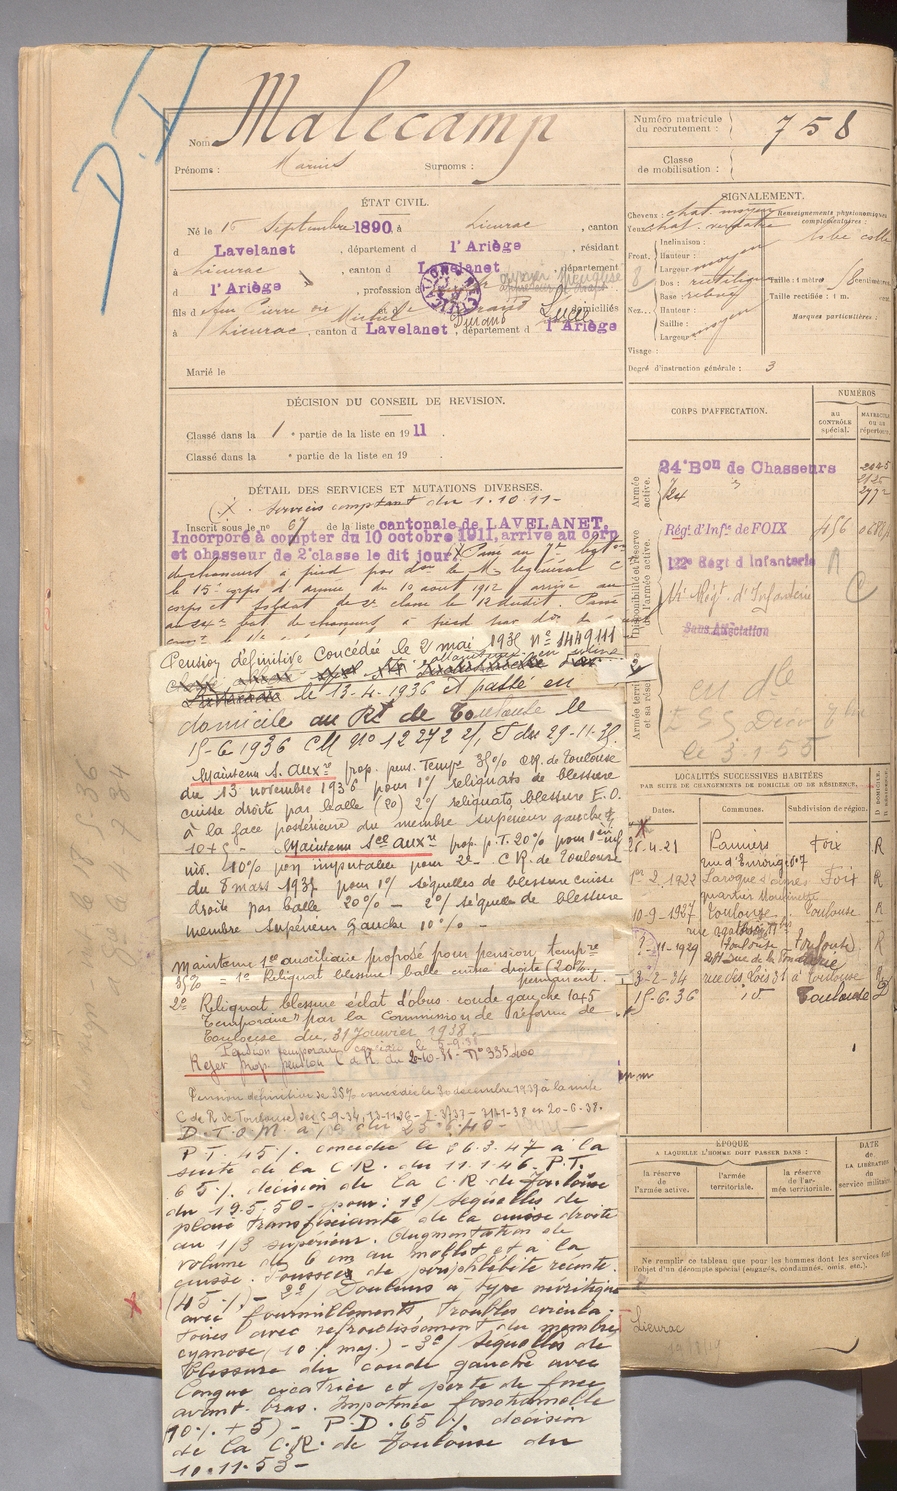 D.I
Nom Malecamp
Prénoms : Marius Surnoms :
Numéro matricule du recrutement : 758
Classe de mobilisation :
ÉTAT CIVIL.
Né le 15 Septembre 1890, à Lieurac, canton
d Lavelanet, département d l'Ariège, résidant
à Lieurac, canton d Lavelanet, département
d l'Ariège, profession d
fils d feu Pierre ou Michel et de Durand Lucie domiciliés
à Lieurac, canton d Lavelanet, département d l'Ariège
Marié le
SIGNALEMENT.
Cheveux : chat. moyen
Yeux chat.
Renseignements physionomiques complémentaires :
Inclinaison :
Front. Hauteur : moyen
Largeur
Dos : rectiligne
Nez. Base :
Hauteur :
Saillie : moyen
Largeur
Visage :
Taille : 1 mètre centimètres
Taille rectifiée : 1 m.
Marques particulières :
Degré d'instruction générale : 3
DÉCISION DU CONSEIL DE REVISION.
Classé dans la 1 e partie de la liste en 1911.
Classé dans la e partie de la liste en 19 .
DÉTAIL DES SERVICES ET MUTATIONS DIVERSES.
(x. Services comptant du 1.10.11-
Inscrit sous le n° 67 de la liste cantonale de LAVELANET.
Incorporé à compter du 10 octobre 1911, arrivé au corp
et chasseur de 2e classe le dit jour. (x Passé au 7e baton
de chasseurs à pied par don de Mr le général C
le 15e corps d'armée du 10 aout 1912 arrivé au
corps et soldat de 2e classe le 12 dudit. Passé
au 24e bat de chasseurs à pied par
CORPS D'AFFECTATION.
NUMÉROS
AU CONTRÔLE SPÉCIAL.
MATRICULE OU AU RÉPERTOIRE
Armée active.
24e Bon de Chasseurs
Disponibilité et réserve de l'armée active.
Régt d'Infie de FOIX 456
122e Régt d'Infanterie
14e Régt. d'Infanterie
Sans Affectation
Armée territoriale et sa réserve
en dle
le 3.1.55
Pension définitive concédée le 2 mai 1935 n° 1449111
le 13-4-1936 et passé en
domicile au Rt de Toulouse le
15-6 1936 CM N° 12272 2/. ET du 29-11-35.
Maintenu S. Auxre prop. pens. Tempre 35% CR. de Toulouse
du 13 novembre 1936 pour 1°/ reliquats de blessure
cuisse droite par balle (20) 2°/ reliquats blessure E.O.
à la face postérieure du membre supérieur gauche
10+5 - Maintenu Sce auxre prop. p.T. 20% pour 1ère inf
inv. 10% non imputable pour 2e - C.R. de Toulouse
du 8 mars 1937 pour 1°/ séquelles de blessure cuisse
droite par balle 20% - 2°/ séquelles de blessure
membre supérieur gauche 10% -
Maintenu 1ce auxiliaire proposé pour pension tempre
35% = 1° Reliquat blessure balle cuisse droite (20%
permanent.
2° Reliquat blessure éclat d'obus coude gauche 10+5
Temporaire par la commission de réforme de
Toulouse du 31 Janvier 1938.
Rejet prop. pension C de R. du 2-10-36- N° 335200
Pension définitive de 35% concédée le 30 décembre 1939 à la suite
C de R de Toulouse
D.T.O.M. du 25.6.40-
P T. 45 %. concédée le 26.3.47 à la
suite de la C.R. du 11.1.46. P.T.
65 %. décision de la C.R. de Toulouse
du 19.5.50 - pour : 1°/ séquelles de
plaie transfixiante de la cuisse droite
au 1/3 supérieur. Augmentation de
volume de 6 cm au mollet et à la
cuisse. Poussées de périphlébite récente.
(45 %). - 2°/ Douleurs à type névritique
avec fourmillements, troubles circula-
toires avec refroidissement du membre,
cyanose, (10 % maj.) - 3°/ Séquelles de
blessure du coude gauche avec
longue cicatrice et perte de force
avant-bras. Impotence fonctionnelle
(10 % + 5) - P.D. 65 %. décision
de la C.R. de Toulouse du
10.11.53 -
LOCALITÉS SUCCESSIVES HABITÉES
PAR SUITE DE CHANGEMENTS DE DOMICILE OU DE RÉSIDENCE.
Dates. Communes. Subdivision de région. D. DOMICILE. R. RÉSIDENCE
26-4-21 Pamiers Foix R
1er 2. 1922 Laroque d'Olmes Foix R
10-9-1927 Toulouse Toulouse R
?-11-1929 Toulouse Toulouse R
3-2-34 rue des Lois 31 à Toulouse
15-6.36 id. Toulouse D
ÉPOQUE
A LAQUELLE L'HOMME DOIT PASSER DANS :
la réserve de l'armée active.
l'armée territoriale.
la réserve de l'armée territoriale.
DATE de LA LIBÉRATION du service militaire
Ne remplir ce tableau que pour les hommes dont les services font
l'objet d'un décompte spécial (engagés, condamnés, omis, etc.).
Lieurac